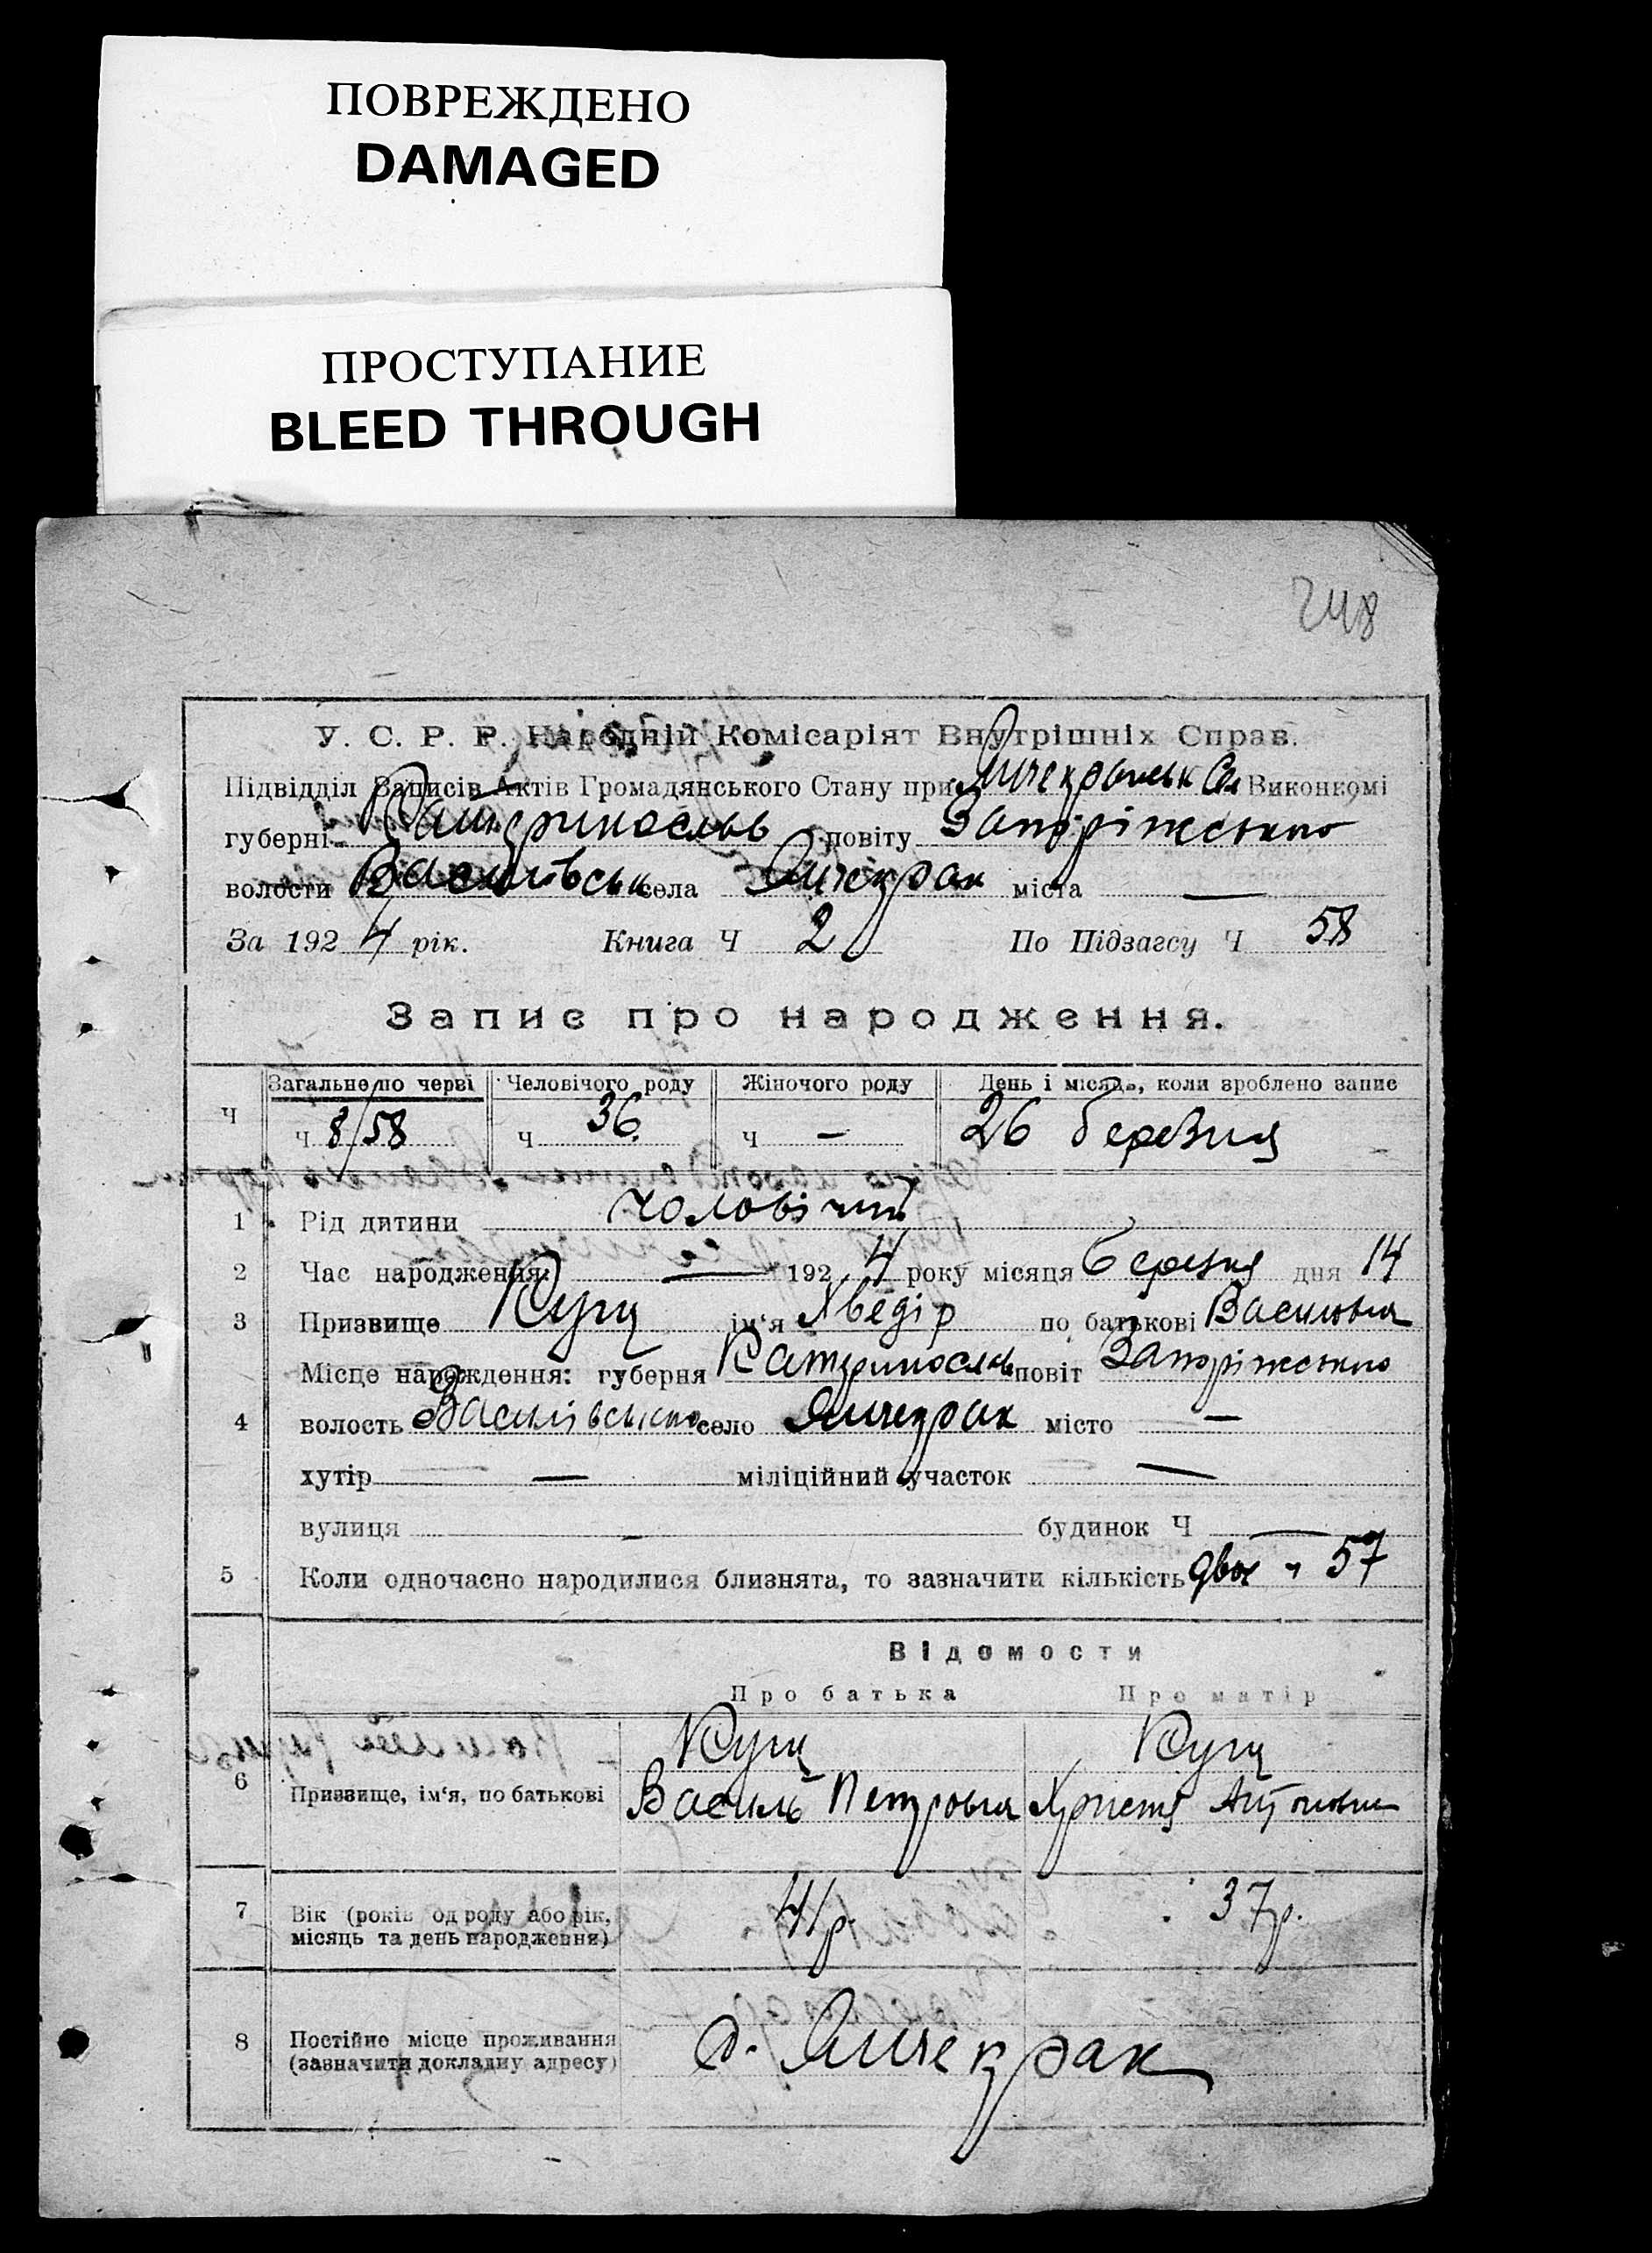 ПОВРЕЖДЕНО
DAMAGED
ПРОСТУПАНИЕ
BLEED THROUGH
248
У. С. Р. Р. Народній Комісаріят Внутрішніх Справ.
Підвідділ Записів Актів Громадянського Стану при Янчекрацьк Сел Виконкомі
губерні Катеринослав повіту Запоріжського
волости Василівськ села Янчекрак міста —
За 1924 рік. Книга Ч 2 По Підзагсу Ч 58
Запис про народження.
Ч Загальне по черві Человічого роду Жіночого роду День і місяць, коли зроблено запис
ч 8/58 ч 36. ч — 26 березня
1 Рід дитини чоловічий
2 Час народження: — 1924 року місяця березня дня 14
3 Призвище Куц ім'я Хведір по батькові Васильов
Місце народження: губерня Катеринослав повіт Запоріжського
4 волость Василівською село Янчекрак місто —
хутір — міліційний участок —
вулиця — будинок Ч —
5 Коли одночасно народилися близнята, то зазначити кількість двоє ч 57
Відомости
Про батька Про матір
Куц Куц
6 Призвище, ім'я, по батькові Василь Петрович Христя Антоновна
7 Вік (років од роду або рік, 41 р. 37 р.
місяць та день народження)
8 Постійне місце проживання с. Янчекрак
(зазначити докладну адресу)